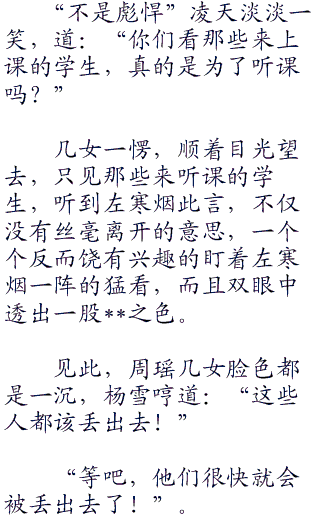 “不是彪悍”凌天淡淡一
笑，道：“你们看那些来上
课的学生，真的是为了听课
吗？”
几女一愣，顺着目光望
去，只见那些来听课的学
生，听到左寒烟此言，不仅
没有丝毫离开的意思，一个
个反而饶有兴趣的盯着左寒
烟一阵的猛看，而且双眼中
透出一股**之色。
见此，周瑶几女脸色都
是一沉，杨雪哼道：“这些
人都该丢出去！”
“等吧，他们很快就会
被丢出去了！”。